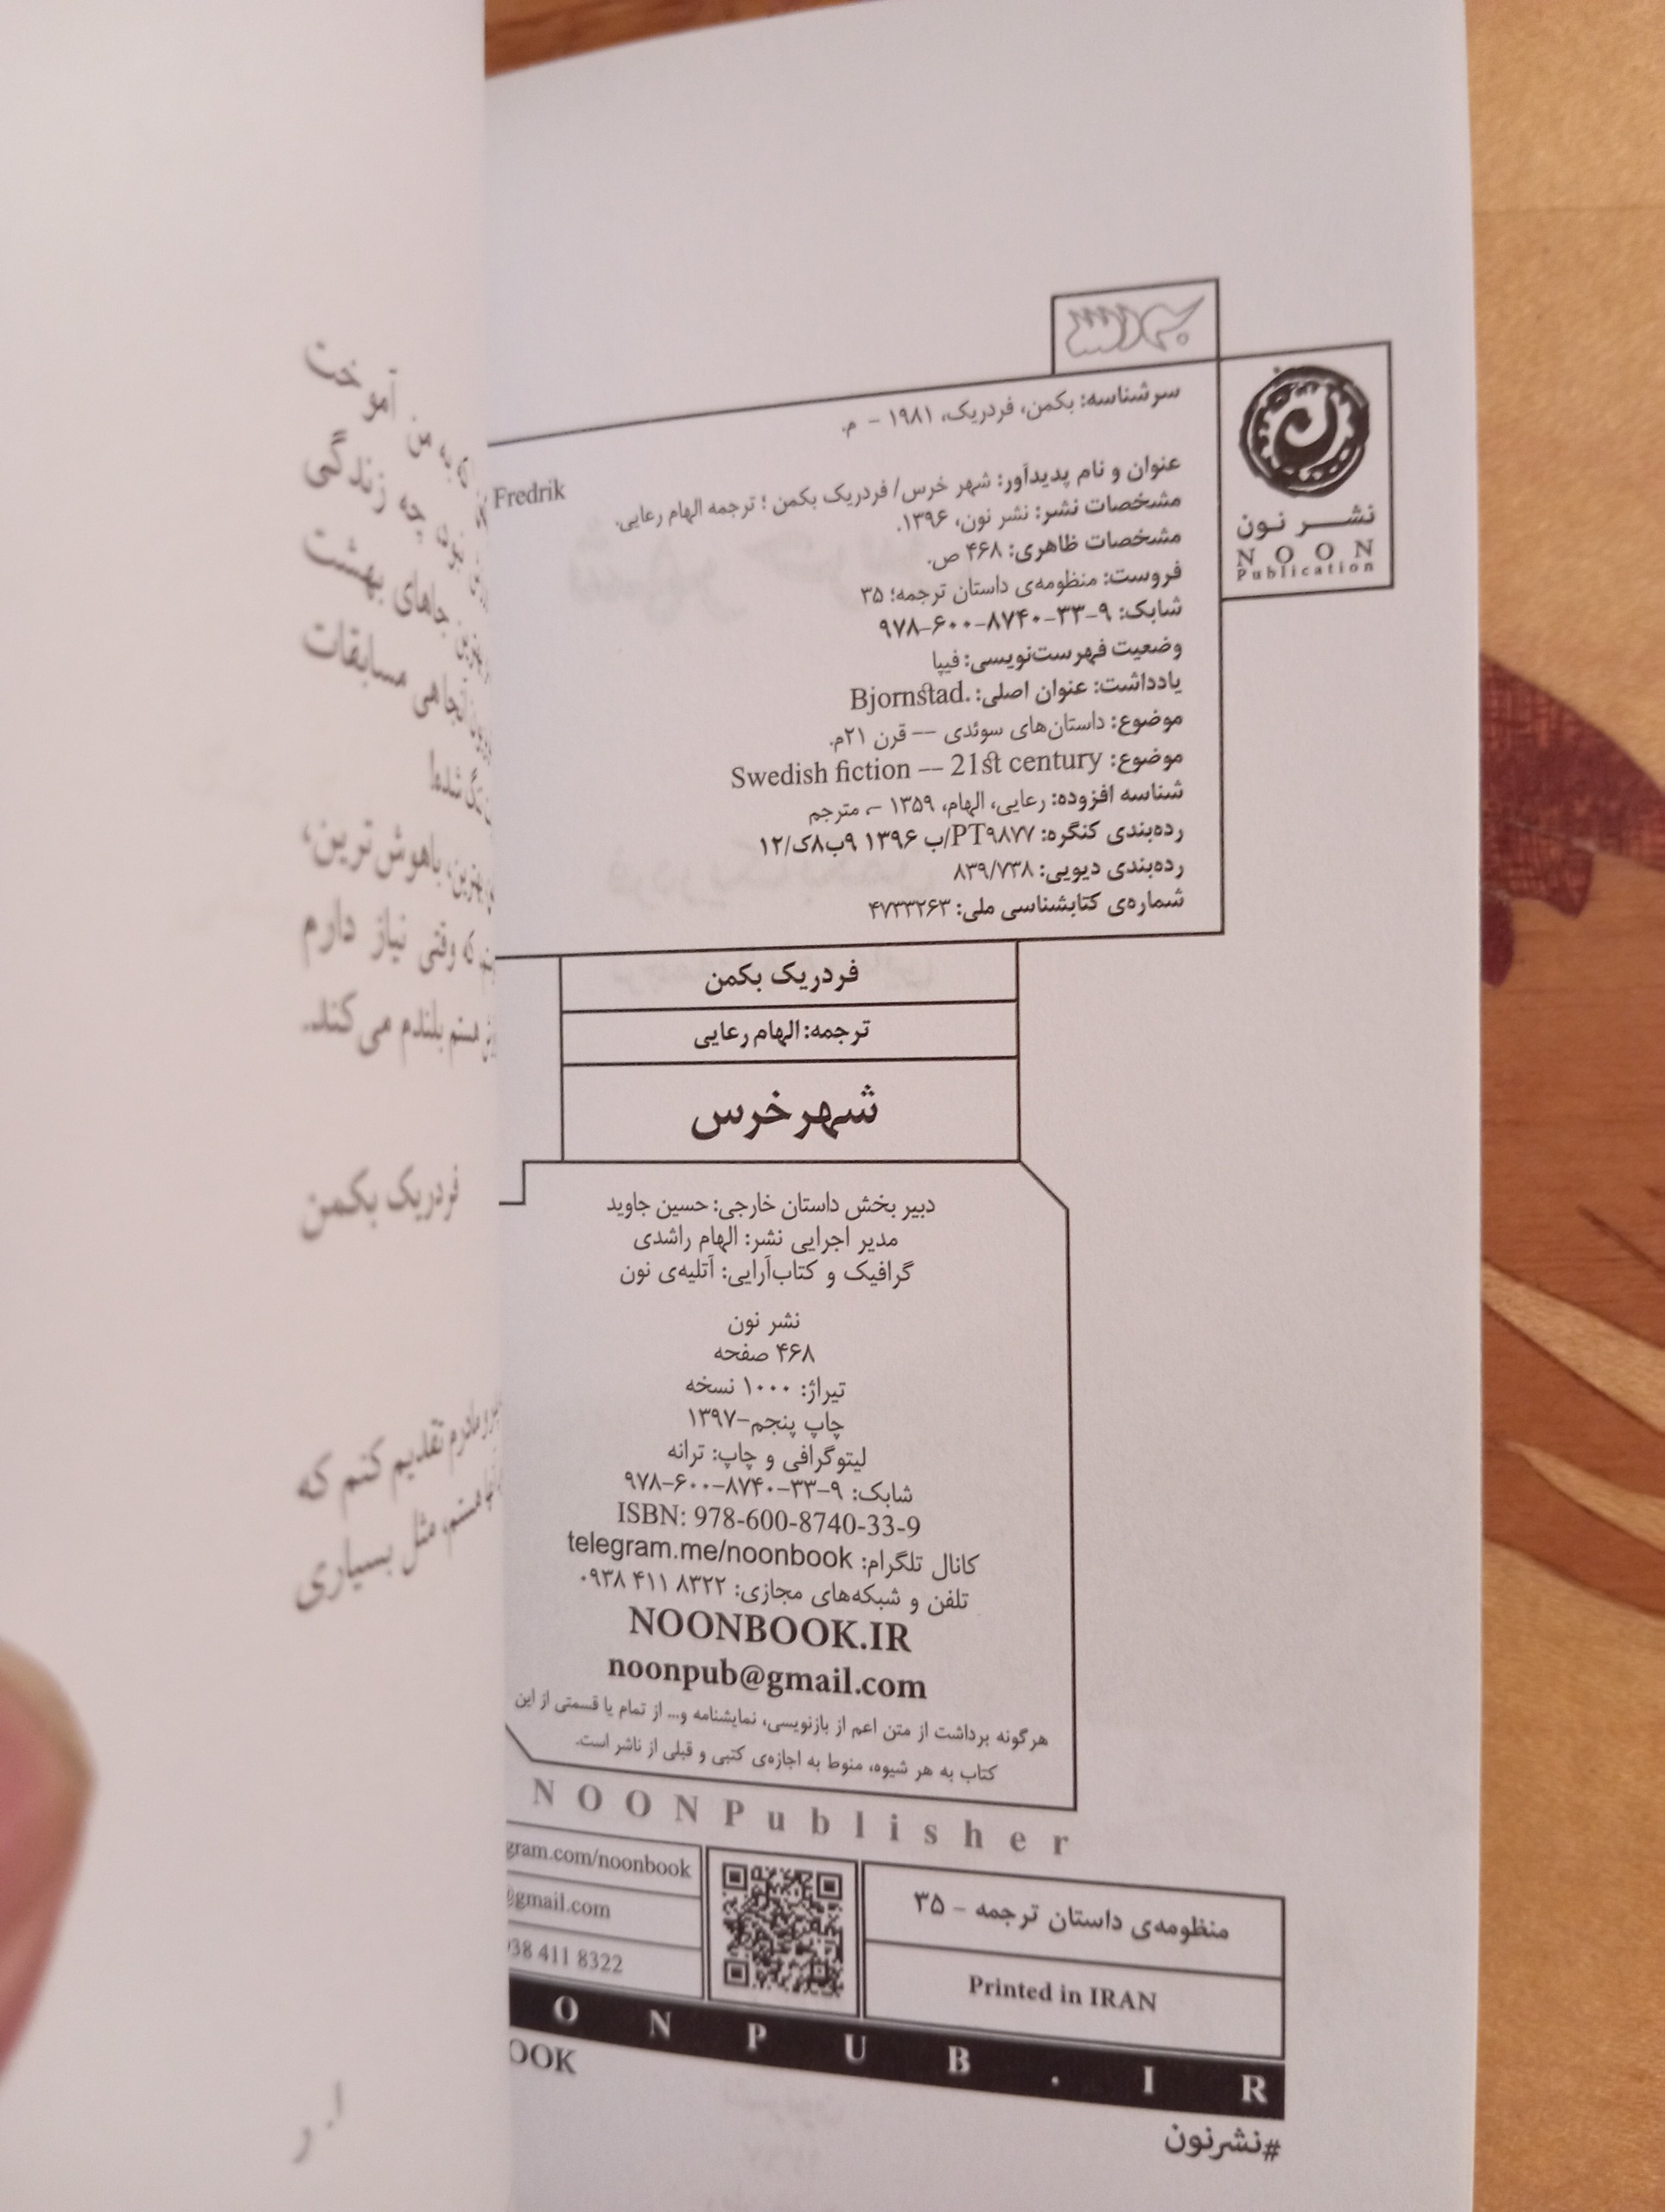 سرشناسه: بکمن، فردریک، ۱۹۸۱ - م.
Fredrik
عنوان و نام پدیدآور: شهر خرس/ فردریک بکمن ؛ ترجمه الهام رعایی.
مشخصات نشر: نشر نون، ۱۳۹۶.
مشخصات ظاهری: ۴۶۸ ص.
فروست: منظومه‌ی داستان ترجمه؛ ۳۵
شابک: ۹-۳۳-۸۷۴۰-۶۰۰-۹۷۸
وضعیت فهرست‌نویسی: فیپا
یادداشت: عنوان اصلی: Bjornstad.
موضوع: داستان‌های سوئدی -- قرن ۲۱م.
موضوع: Swedish fiction -- 21st century
شناسه افزوده: رعایی، الهام، ۱۳۵۹ -، مترجم
رده‌بندی کنگره: PT۹۸۷۷/ب ۱۳۹۶ ۹ب۸ک/۱۲
رده‌بندی دیویی: ۸۳۹/۷۳۸
شماره‌ی کتابشناسی ملی: ۴۷۳۳۲۶۳
نشر نون
NOON
Publication
فردریک بکمن
ترجمه: الهام رعایی
شهر خرس
دبیر بخش داستان خارجی: حسین جاوید
مدیر اجرایی نشر: الهام راشدی
گرافیک و کتاب‌آرایی: آتلیه‌ی نون
نشر نون
۴۶۸ صفحه
تیراژ: ۱۰۰۰ نسخه
چاپ پنجم-۱۳۹۷
لیتوگرافی و چاپ: ترانه
شابک: ۹-۳۳-۸۷۴۰-۶۰۰-۹۷۸
ISBN: 978-600-8740-33-9
کانال تلگرام: telegram.me/noonbook
تلفن و شبکه‌های مجازی: ۰۹۳۸ ۴۱۱ ۸۳۲۲
NOONBOOK.IR
noonpub@gmail.com
هرگونه برداشت از متن اعم از بازنویسی، نمایشنامه و... از تمام یا قسمتی از این
کتاب به هر شیوه، منوط به اجازه‌ی کتبی و قبلی از ناشر است.
NOONPublisher
gram.com/noonbook
@gmail.com
938 411 8322
منظومه‌ی داستان ترجمه - ۳۵
Printed in IRAN
ONPUB.IR
OOK
#نشرنون
به من آموخت
چه زندگی
جاهای بهشت
مسابقات
شده!
بهترین، باهوش‌ترین،
که وقتی نیاز دارم
هستم بلندم می‌کند.
فردریک بکمن
مادرم تقدیم کنم که
هستم، مثل بسیاری
ا. ر